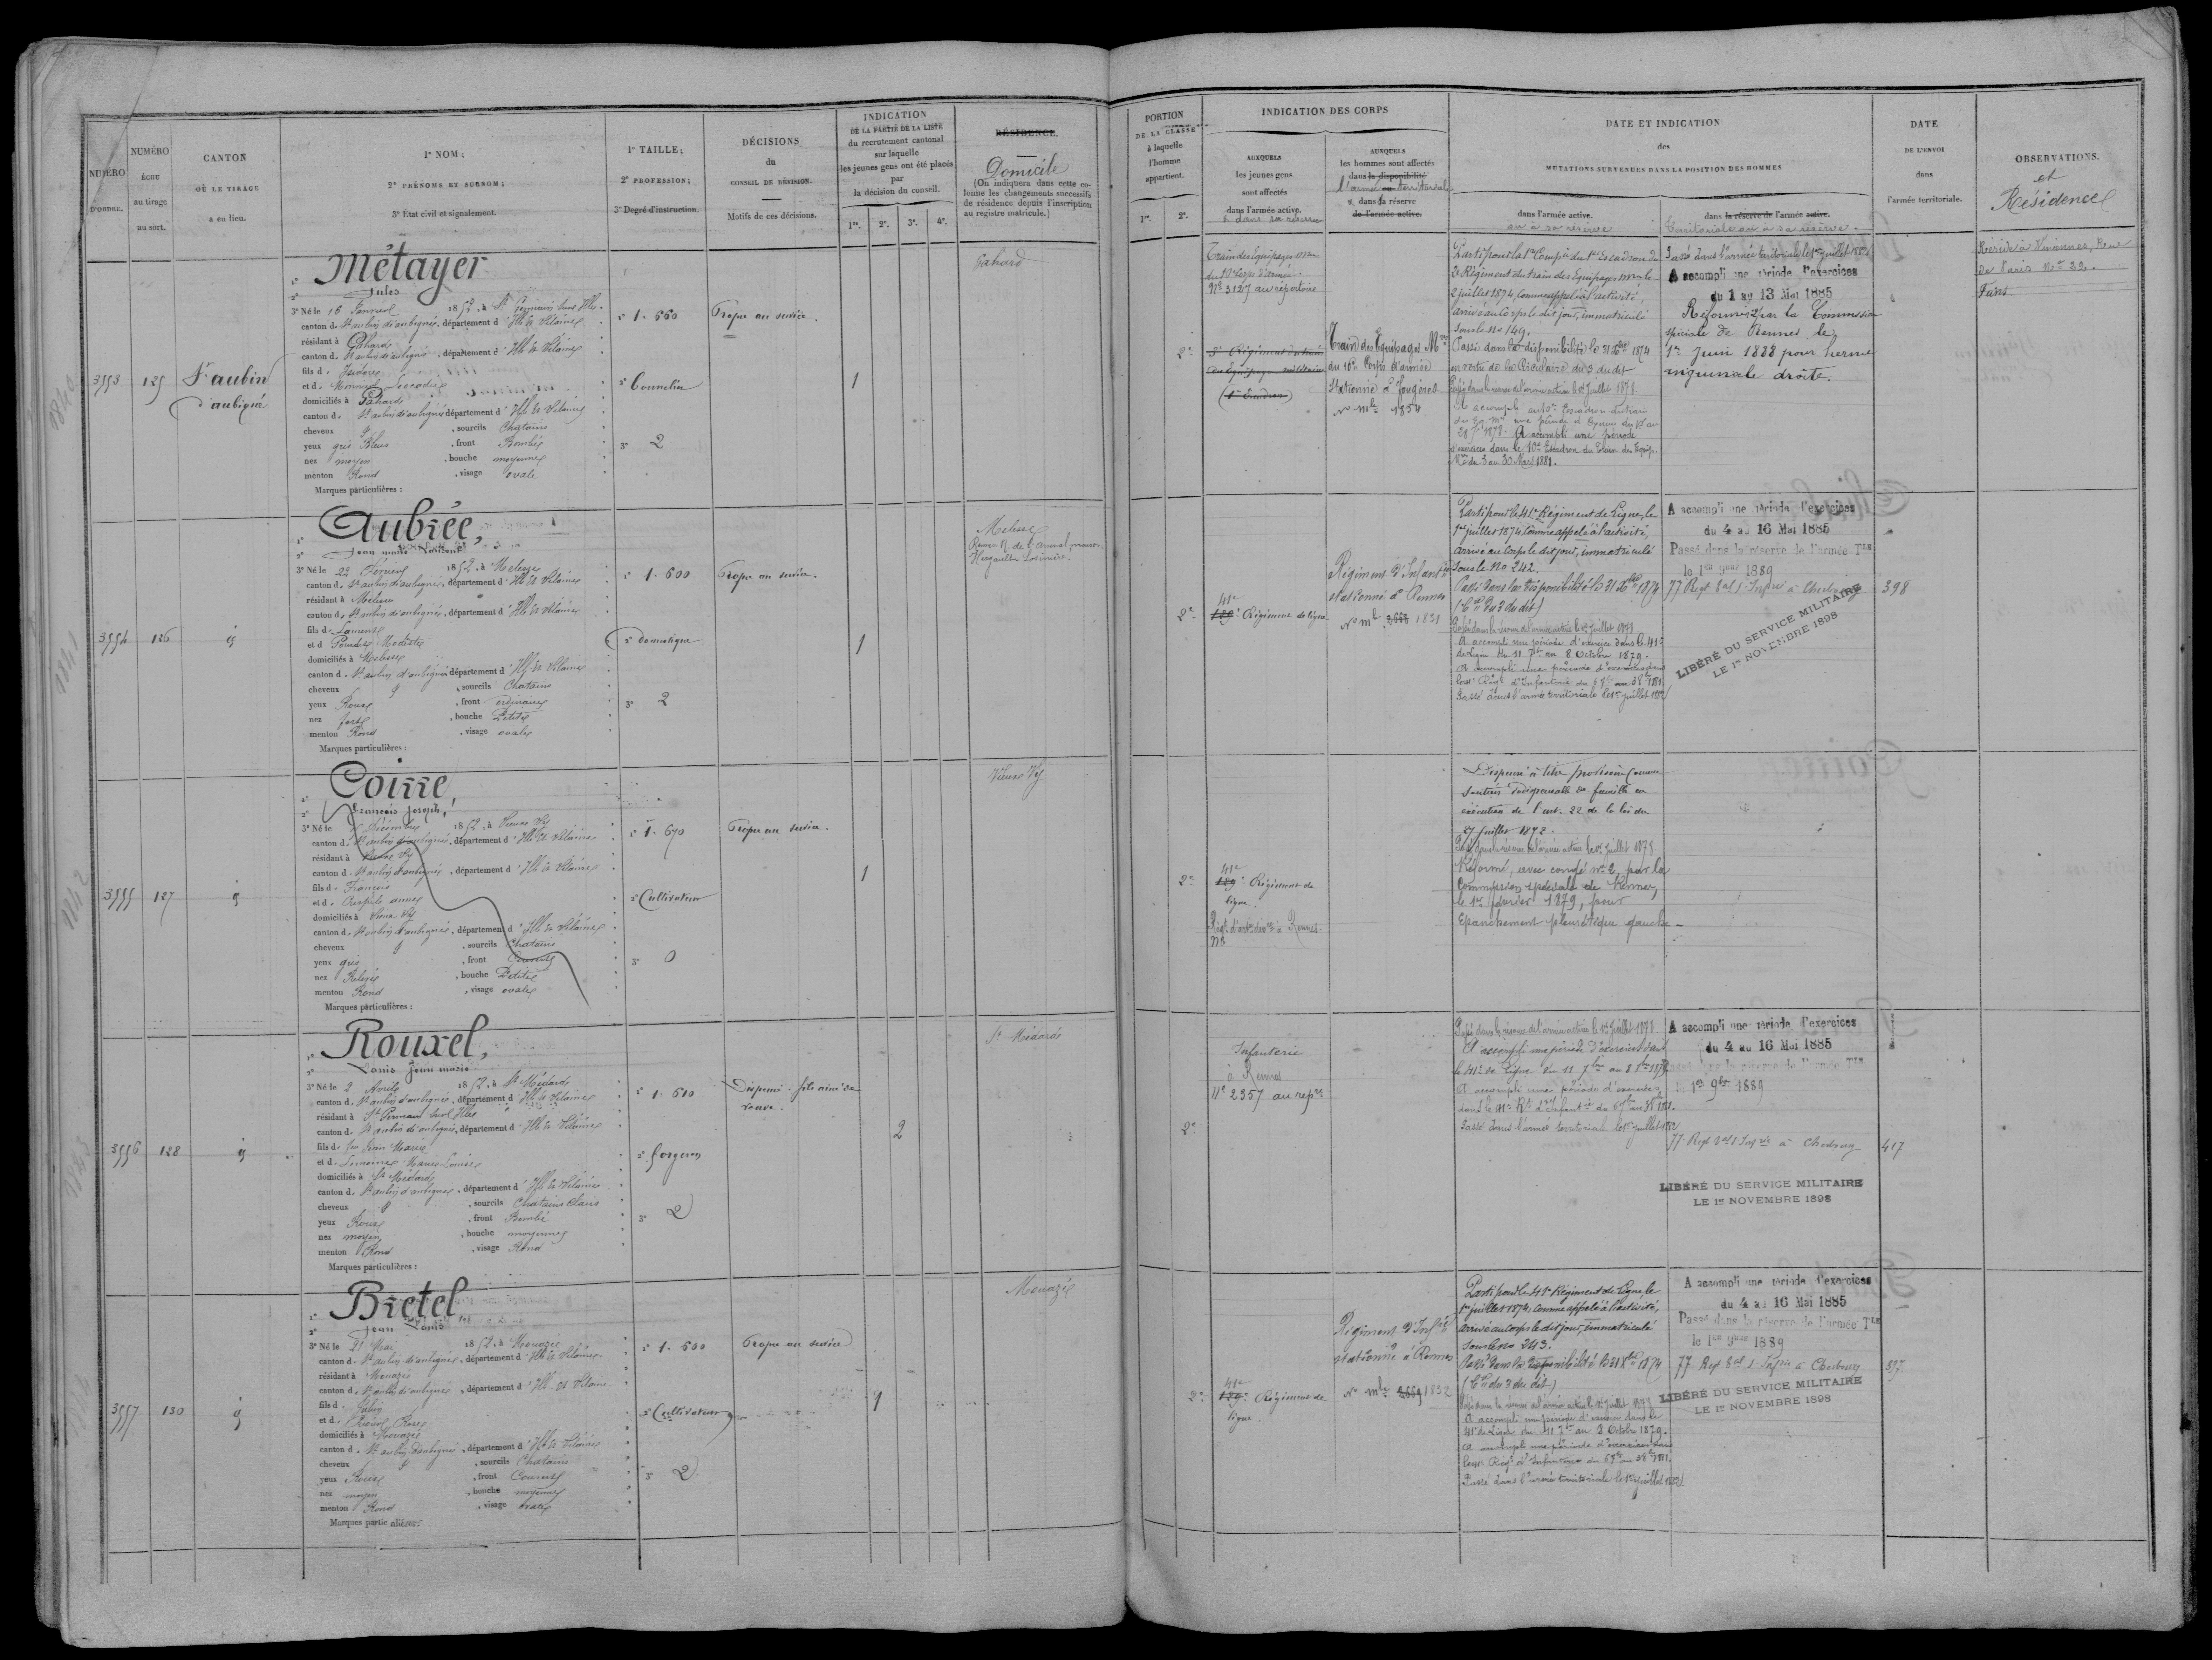 NUMÉRO
D'ORDRE.
NUMÉRO
ÉCHU
au tirage
au sort.
CANTON
OÙ LE TIRAGE
a eu lieu.
1º NOM;
2º PRÉNOMS ET SURNOM;
3º État civil et signalement.
1º TAILLE;
2º PROFESSION;
3º Degré d'instruction.
DÉCISIONS
du
CONSEIL DE RÉVISION.
Motifs de ces décisions.
INDICATION
DE LA PARTIE DE LA LISTE
du recrutement cantonal
sur laquelle
les jeunes gens ont été placés
par
la décision du conseil.
1re. 2e. 3e. 4e.
RÉSIDENCE.
Domicile
(On indiquera dans cette co-
lonne les changements successifs
de résidence depuis l'inscription
au registre matricule.)
3553
125
St aubin
d'aubigné
1º Métayer
2º Jules
3º Né le 16 Janvier 1852, à St Germain sur Ille
canton d. St aubin d'aubigné, département d'Ille et Vilaine
résidant à Gahard
canton d. St aubin d'aubigné, département d'Ille et Vilaine
fils d. Isidore
et d.
domiciliés à Gahard
canton d. St aubin d'aubigné département d'Ille et Vilaine
cheveux , sourcils Chatains
yeux gris Bleus , front Bombé
nez moyen , bouche moyenne
menton Rond , visage ovale
Marques particulières :
1º 1.660
2º Tonnelier
3º 2
Propre au service.
1
Gahard
3554
126
1º Aubrée,
2º Jean marie
3º Né le 22 Février 1852, à Melesse
canton d. St aubin d'aubigné, département d'Ille et Vilaine
résidant à Melesse
canton d. St aubin d'aubigné, département d'Ille et Vilaine
fils d. Laurent
et d. Modeste
domiciliés à Melesse
canton d. St aubin d'aubigné département d'Ille et Vilaine
cheveux , sourcils Chatains
yeux Roux , front ordinaire
nez fort , bouche Petite
menton Rond , visage ovale
Marques particulières :
1º 1.600
2º domestique
3º 2
Propre au service.
1
Melesse
3555
127
1º Coirre,
2º François Joseph,
3º Né le Décembre 1852, à Vieux Vy
canton d. St aubin d'aubigné, département d'Ille et Vilaine
résidant à Vieux Vy
canton d. St aubin d'aubigné, département d'Ille et Vilaine
fils d. François
et d. anne
domiciliés à Vieux Vy
canton d. St aubin d'aubigné, département d'Ille et Vilaine
cheveux , sourcils Chatains
yeux gris , front Couvert
nez Relevé , bouche Petite
menton Rond , visage ovale
Marques particulières :
1º 1.670
2º Cultivateur
3º 0
Propre au service.
1
Vieux Vy
3556
128
1º Rouxel,
2º Louis Jean marie
3º Né le 2 Avril 1852, à St Médard
canton d. St aubin d'aubigné, département d'Ille et Vilaine
résidant à St Germain sur Ille
canton d. St aubin d'aubigné, département d'Ille et Vilaine
fils d. feu Jean Marie
et d. Lemoine Marie Louise
domiciliés à St Médard
canton d. St aubin d'aubigné, département d'Ille et Vilaine
cheveux , sourcils Chatains Clairs
yeux Roux , front Bombé
nez moyen , bouche moyenne
menton Rond , visage Rond
Marques particulières :
1º 1.610
2º forgeron
3º 2
Dispensé. fils aîné de
veuve.
2
St Médard
3557
130
1º Bretel
2º Jean Louis
3º Né le 21 Mai 1852, à Mouazé
canton d. St aubin d'aubigné, département d'Ille et Vilaine
résidant à Mouazé
canton d. St aubin d'aubigné, département d'Ille et Vilaine
fils d.
et d. Rose
domiciliés à Mouazé
canton d. St aubin d'aubigné, département d'Ille et Vilaine
cheveux , sourcils Chatains
yeux Roux , front Couvert
nez moyen , bouche moyenne
menton Rond , visage ovale
Marques particulières :
1º 1.600
2º Cultivateur
3º 2
Propre au service
1
Mouazé
PORTION
DE LA CLASSE
à laquelle
l'homme
appartient.
1re. 2e.
INDICATION DES CORPS
AUXQUELS
les jeunes gens
sont affectés
dans l'armée active.
& dans sa réserve
AUXQUELS
les hommes sont affectés
dans la disponibilité
l'armée ou territoriale
& dans sa réserve
de l'armée active.
DATE ET INDICATION
des
MUTATIONS SURVENUES DANS LA POSITION DES HOMMES
dans l'armée active.
ou sa réserve
dans la réserve de l'armée active.
territoriale ou à sa réserve.
DATE
DE L'ENVOI
dans
l'armée territoriale.
OBSERVATIONS.
et
Résidence
2e
Train des Equipages mres
du Corps d'armée.
Nº 3127 au répertoire
3e Régiment du train
des Equipages militaires
(1er Escadron)
Train des Equipages Mres
du 10e Corps d'armée
Stationné à Fougères
Nº mle 1854
Parti pour la 1re Compie du 1er Escadron du
3e Régiment du train des Equipages mres le
2 juillet 1874, comme appelé à l'activité,
arrivé au Corps le dit jour, immatriculé
sous le no 149.
Passé dans la disponibilité le 31 Xbre 1874
en vertu de la Circulaire du 3 du dit
Passé dans la réserve de l'armée active le 1er Juillet 1878.
A accompli une période
d'exercices dans le 10e Escadron du Train des Equip.
Mres du 3 au 30 Mars 1881.
Passé dans l'armée territoriale le 1er juillet 1882
A accompli une période d'exercices
du 1 au 13 Mai 1885
Réformé par la Commission
spéciale de Rennes le
1er Juin 1888 pour hernie
inguinale droite.
Réside à Vincennes, Rue
de Paris No 32.
2e
41e
129e Régiment de ligne
Régiment d'Infanie
stationné à Rennes
Nº mle 2668 1831
Parti pour le 41e Régiment de Ligne, le
1er juillet 1874, comme appelé à l'activité,
arrivé au Corps le dit jour, immatriculé
sous le no 242.
Passé dans la disponibilité le 31 Xbre 1874
(Cre du 3 du dit)
Passé dans la réserve de l'armée active le 1er Juillet 1878
A accompli une période d'exercices dans le 41e
de Ligne du 11 7bre au 8 Octobre 1879.
A accompli une période d'exercices dans
Passé dans l'armée territoriale le 1er juillet 1882
A accompli une période d'exercices
du 4 au 16 Mai 1885
Passé dans la réserve de l'armée Tle
le 1er 9bre 1889
77 Regt à Cherbourg
LIBÉRÉ DU SERVICE MILITAIRE
LE 1er NOVEMBRE 1898
398
2e
41e
129e Régiment de
ligne.
Dispensé à titre provisoire comme
soutien indispensable de famille en
exécution de l'art. 22 de la loi du
27 juillet 1872.
Passé dans la réserve de l'armée active le 1er Juillet 1878
Réformé, avec congé nº 2, par la
Commission spéciale de Rennes,
le 1er février 1879, pour
Epanchement pleurétique gauche
2e
Infanterie
à Rennes
Nº 2357 au repre
Passé dans la réserve de l'armée active le 1er Juillet 1878
A accompli une période d'exercices dans
le 41e de Ligne du 11 7bre au 8 8bre 1879
A accompli une période d'exercices
Passé dans l'armée territoriale le 1er juillet 1882
A accompli une période d'exercices
du 4 au 16 Mai 1885
Passé dans la réserve de l'armée Tle
le 1er 9bre 1889
77 Regt à Cherbourg
LIBÉRÉ DU SERVICE MILITAIRE
LE 1er NOVEMBRE 1898
417
2e
41e
129e Régiment de
ligne.
Régiment d'Infie
stationné à Rennes
Nº mle 2669 1832
Parti pour le 41e Régiment de Ligne, le
1er juillet 1874, comme appelé à l'activité,
arrivé au corps le dit jour, immatriculé
sous le no 243.
Passé dans la disponibilité le 31 Xbre 1874
(Cre du 3 du dit)
Passé dans la réserve de l'armée active le 1er Juillet 1878
A accompli une période d'exercices dans le
41e de Ligne du 11 7bre au 8 Octobre 1879.
A accompli une période d'exercices dans
Passé dans l'armée territoriale le 1er juillet 1882
A accompli une période d'exercices
du 4 au 16 Mai 1885
Passé dans la réserve de l'armée Tle
le 1er 9bre 1889
77 Regt à Cherbourg
LIBÉRÉ DU SERVICE MILITAIRE
LE 1er NOVEMBRE 1898